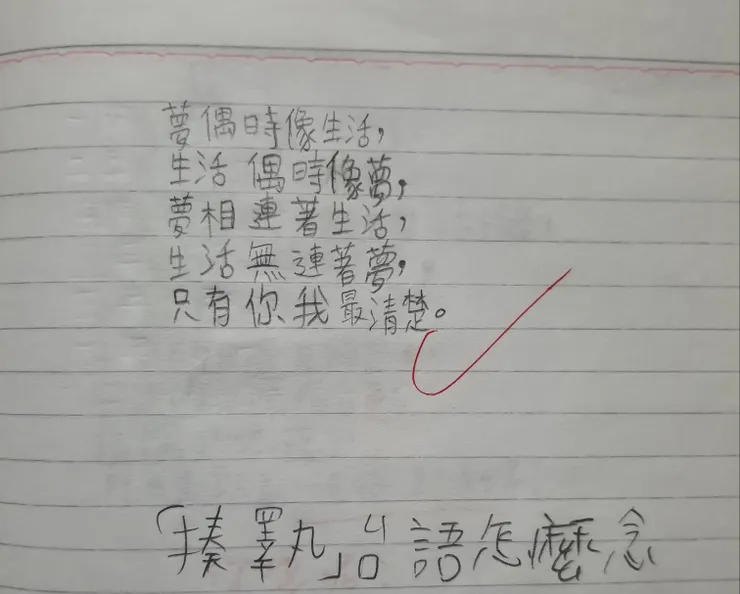 夢偶時像生活,
生活偶時像夢,
夢相連著生活,
生活無連著夢,
只有你我最清楚。
「揍睪丸」台語怎麼念